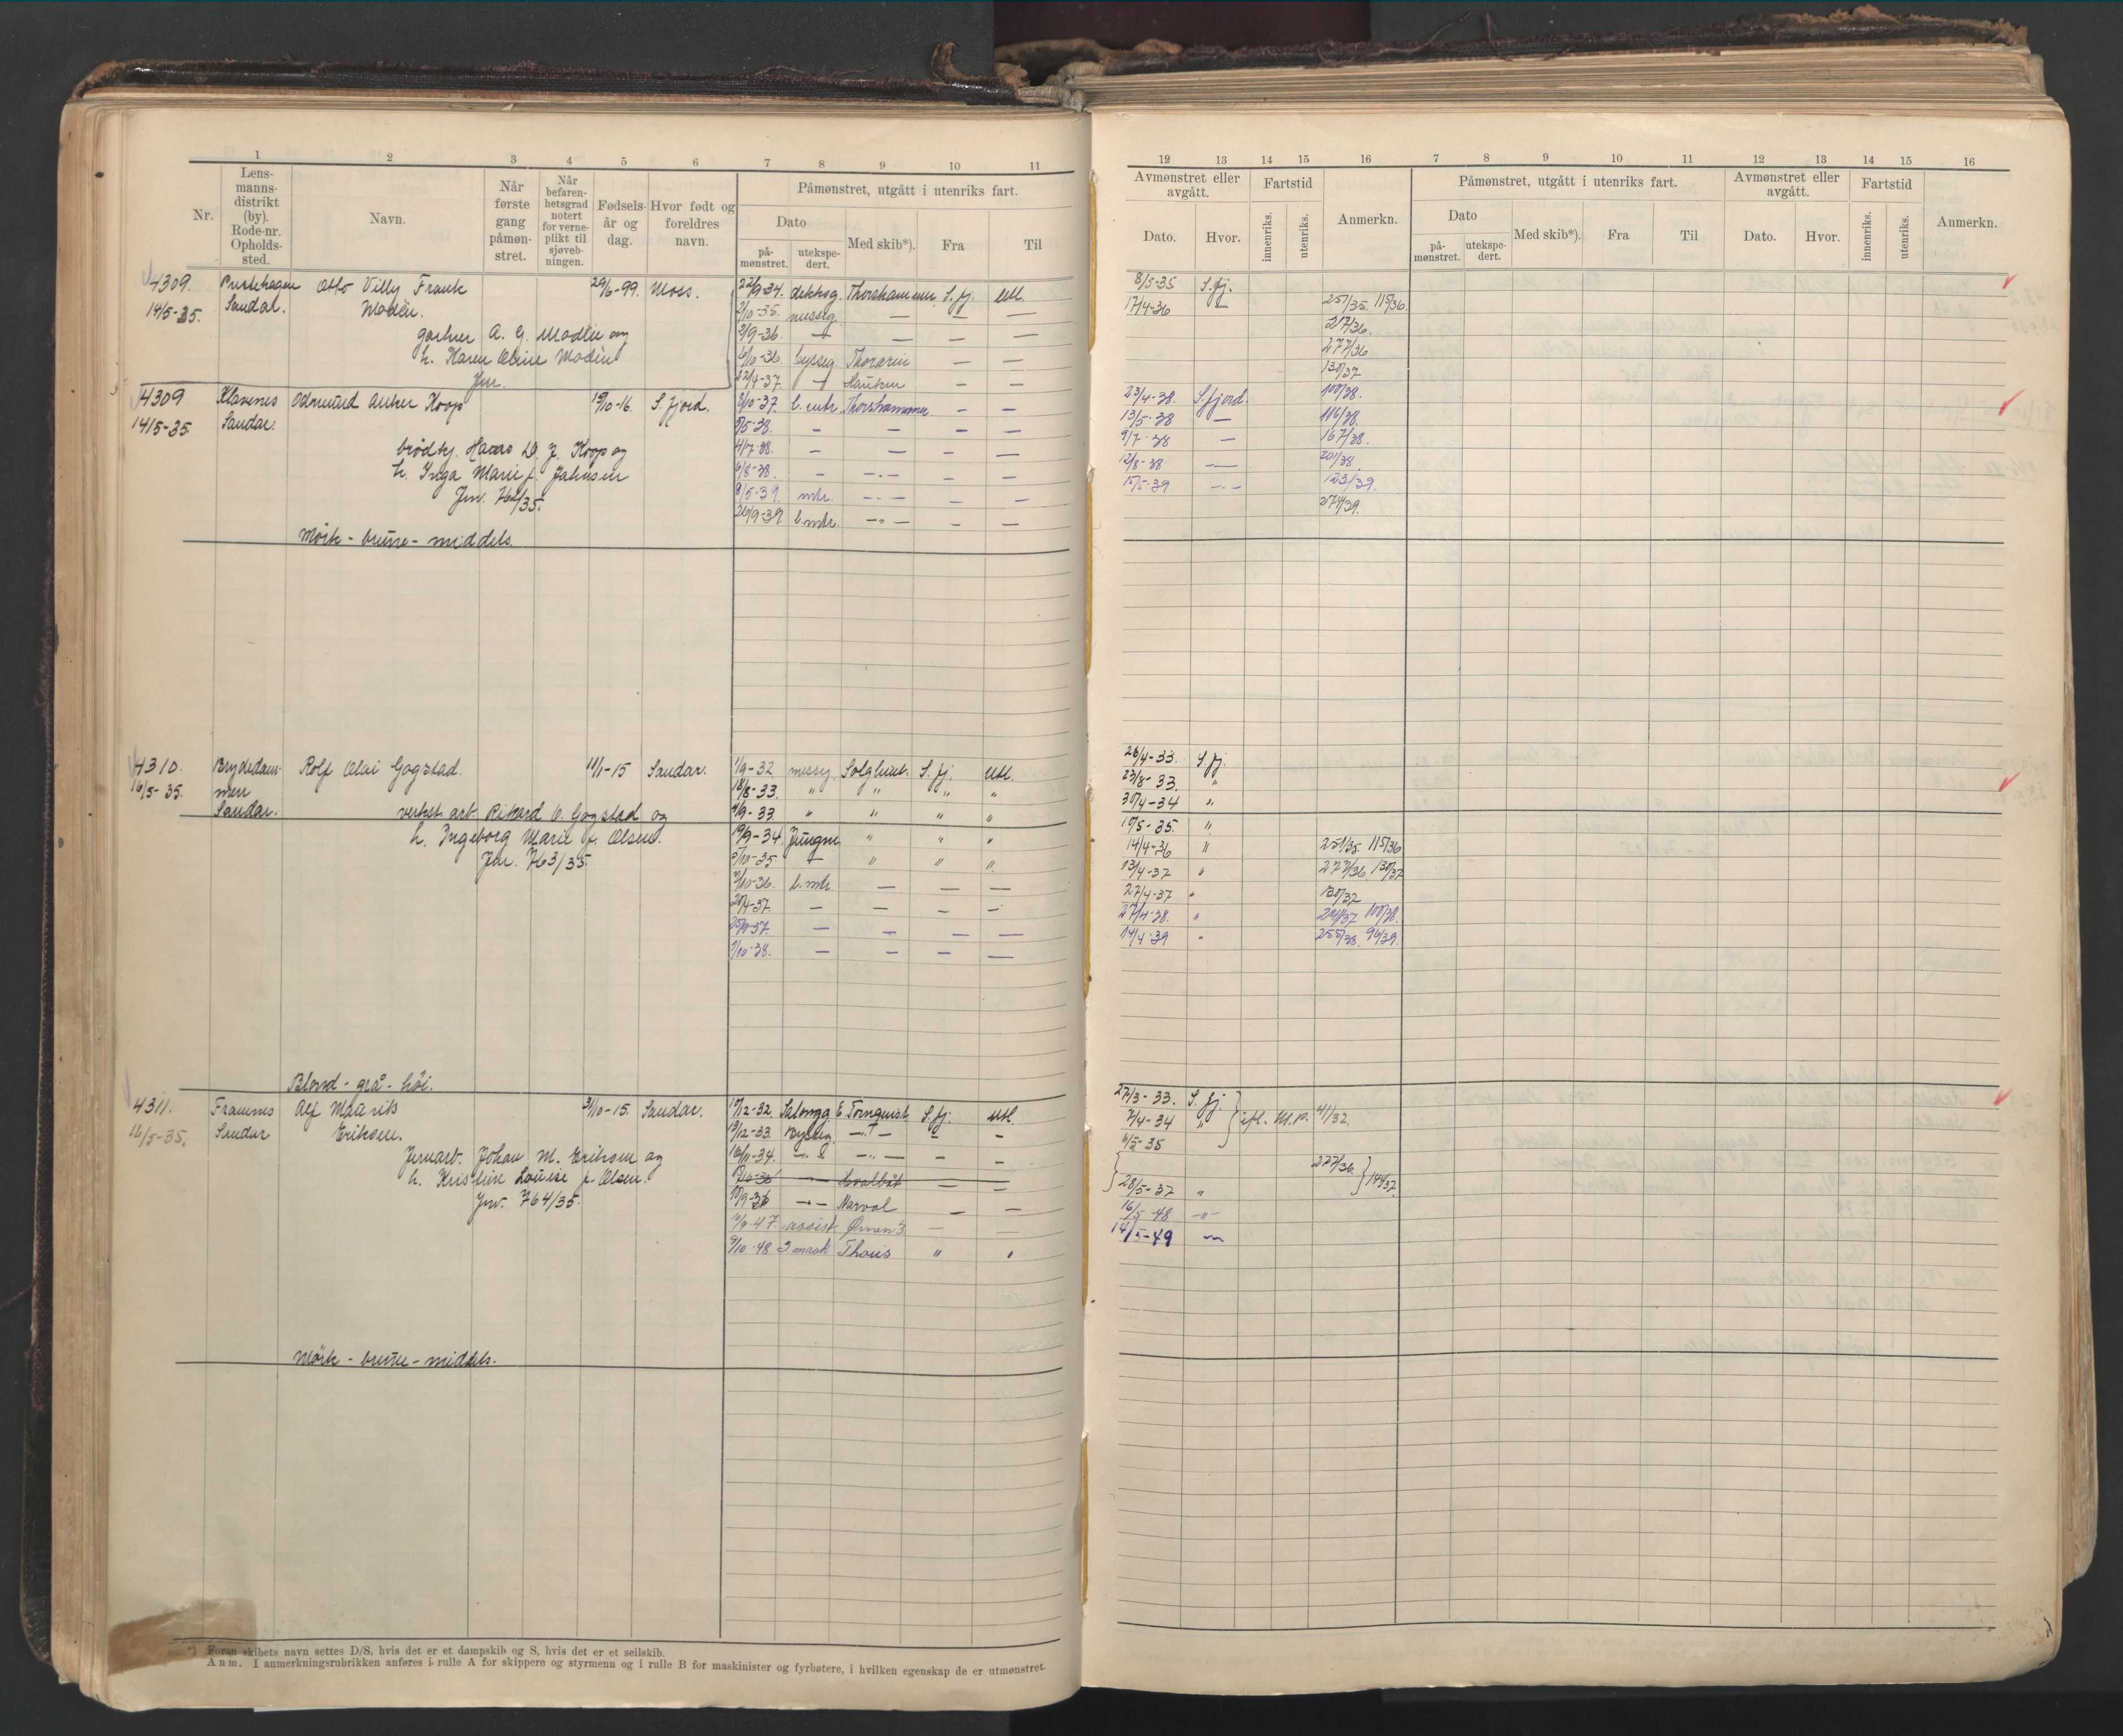 1 2 3 4 5 6 7 8 9 10 11
Nr. Lens-manns-distrikt (by). Rode-nr. Opholds-sted. Navn. Når første gang påmøn-stret. Når befaren-hetsgrad notert for verne-plikt til sjøveb-ningen. Fødsels-år og dag. Hvor født og foreldres navn. Påmønstret, utgått i utenriks fart.
Dato på-mønstret. utekspe-dert. Med skib*). Fra Til
4309. Otto Villy Frank 29/6-99. Moss. 22/9-34. Thorshammer S. fj. Utl.
14/5-35. Sandar. Modèn. 2/10-35. messg. — — —
gartner A. G. Modèn og 2/9-36. — — — —
h. Karen Oline Modèn 6/10-36 bysseg Thorarin — —
Jnr. 22/4-37. — Hauken — —
4309 Klavenes Odmund Anker Koop 19/10-16. S. fjord. 8/10-37. Thorshammer — —
14/5-35. Sandar. 9/5-38. — — — —
4/7-38. — — — —
h. Inga Marie f. Jahnsen 6/8-38. — — — —
Jnr. 762/35. 8/5-39. mtr. — — —
26/9-39. b.mtr. — — —
Mørk - brune - middels.
4310. Brydedam- Rolf Olai Gogstad. 11/1-15 Sandar. 1/9-32 messg Solglimt. S. fj. Utl.
16/5-35. men 18/8-33. " " " "
Sandar. verkst. arb. Rikard O. Gogstad og 4/9-33. " " " "
h. Ingeborg Marie f. Olsen. 19/9-34. Jungm. " " "
Jnr. 763/35. 3/10-35 — " " "
2/10-36. b.mtr. — — —
20/4-37. — — — —
25/9-37. — — — —
1/10-38. — — — —
Blond - grå - høi.
4311. Framnes Alf Maarits 31/10-15. Sandar. 10/12-32. Salongg E. Tornquist S. fj. Utl.
16/5-35. Sandar Eriksen. 13/12-33. Bysseg. — — —
Jernarb. Johan M. Eriksen og 16/11-34. — — — —
h. Kristine Louise f. Olsen. Hvalbåt — —
Jnr. 764/35. 10/9-36 — Narval — —
6/9-47. assist. Ørnen 3 — —
9/10-48 3 mask Thoris " "
Mørk - brune - middels.
*) Foran skibets navn settes D/S, hvis det er et dampskib og S, hvis det er et seilskib.
Anm. I anmerkningsrubrikken anføres i rulle A for skippere og styrmenn og i rulle B for maskinister og fyrbøtere, i hvilken egenskap de er utmønstret.
12 13 14 15 16 7 8 9 10 11 12 13 14 15 16
Avmønstret eller avgått. Fartstid Anmerkn. Påmønstret, utgått i utenriks fart. Avmønstret eller avgått. Fartstid Anmerkn.
Dato. Hvor. innenriks. utenriks. Dato på-mønstret. utekspe-dert. Med skib*). Fra Til Dato. Hvor. innenriks. utenriks.
8/5-35 S. fj.
17/4-36 — 251/35. 115/36.
217/36.
277/36
130/37
23/4-38. S. fjord. 100/38.
13/5-38 — 116/38.
9/7-38 — 167/38.
12/8-38 — 201/38.
15/5-39 — 123/39.
274/39.
26/4-33. S. fj.
23/8-33. "
30/4-34 "
10/5-35. "
14/4-36 " 251/35. 115/36
13/4-37 " 277/36. 130/37
27/4-37 " 130/37
27/4-38. " 100/38.
14/4-39 " 255/38. 94/39.
27/3-33. S. fj.
7/4-34 "
6/5-35
277/36.
28/5-37 " 144/37
16/5-48 "
14/5-49 "